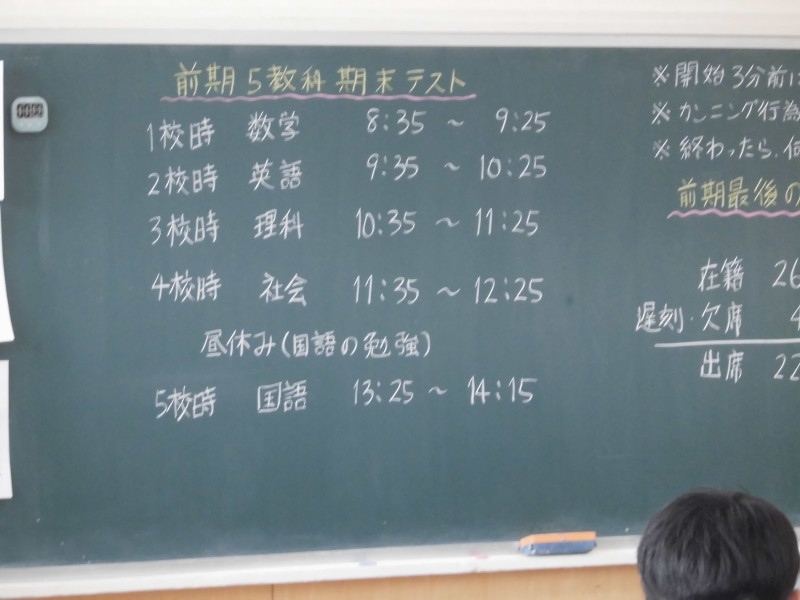 前期5教科期末テスト
1校時 数学 8:35 ~ 9:25
2校時 英語 9:35 ~ 10:25
3校時 理科 10:35 ~ 11:25
4校時 社会 11:35 ~ 12:25
昼休み(国語の勉強)
5校時 国語 13:25 ~ 14:15
※開始3分前に
※カンニング行為
※終わったら、何
前期最後の
在籍 26
遅刻・欠席 4
出席 22